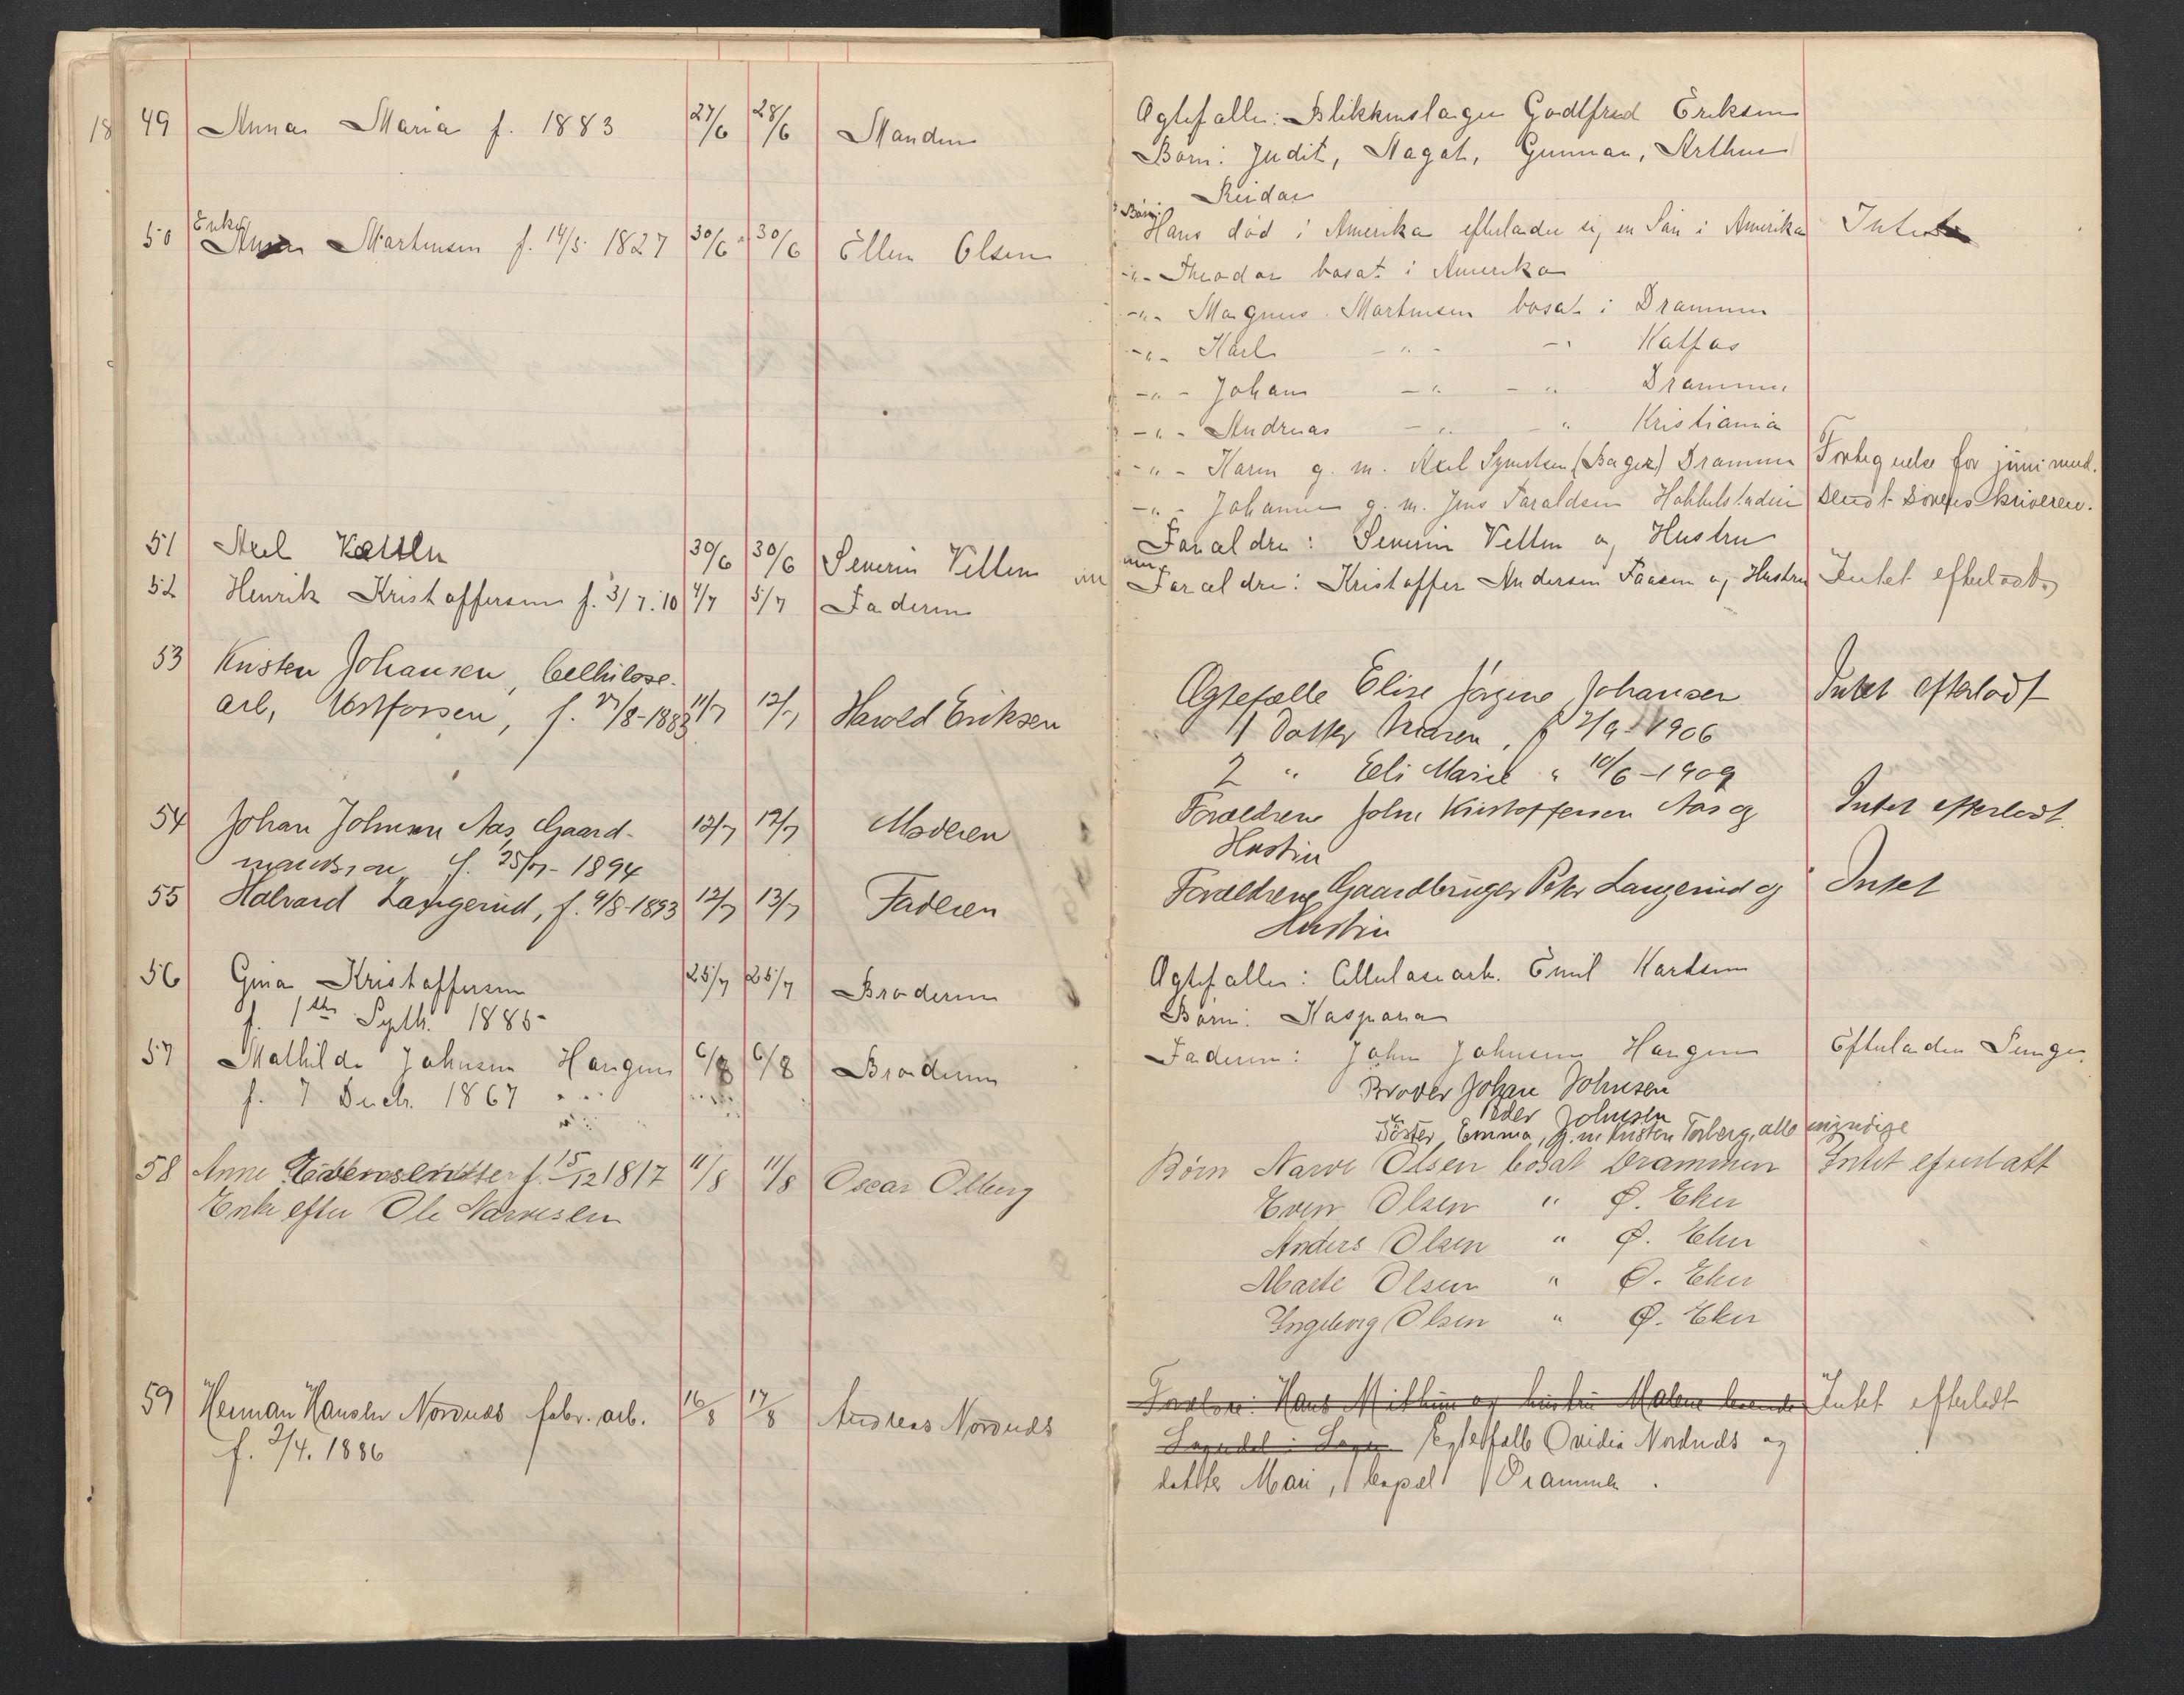 18 49 Anna Maria f. 1883 27/6 28/6 Manden
Ægtefælle: Blikkenslager Godtfred Eriksen
Børn: Judit, Magot, Gunnar, Arthur
Reidar
50 Enke Martinsen f. 14/5 1827 30/6 30/6 Ellen Olsen
Børn: Hans død i Amerika efterlader sig en Søn i Amerika Intet
-"- Theodor bosat i Amerika
-"- Magnus Martinsen bosat i Drammen
-"- Karl -"- -" Kalfos
-"- Johan -"- -" Drammen
-"- Andreas -"- " Kristiania
-"- Karen g. m. Axel Syvertsen (Bager) Drammen Fortegnelse for juni mnd.
-"- Johanne g. m. Jens Taraldsen Hokkelstadeie sendt Sorenskriveren.
51 Axel Vellen 30/6 30/6 Severin Vellen
Forældre: Severin Vellen og Hustru
52 Henrik Kristoffersen f. 3/7. 10 4/7 5/7 Faderen
Forældre: Kristoffer Andersen Faasen og Hustru Intet efterladt
53 Kristen Johansen, Cellulose-
arb, Vestfossen, f. 27/8-1883 11/7 12/7 Harold Eriksen
Ægtefælle Elise Jørgine Johansen Intet efterladt
1 Datter, f 7/9-1906
2 " Eli Marie " 10/6-1909
54 Johan Johnsen Aas, Gaard-
mandssøn f. 25/7-1894 12/7 12/7 Moderen
Forældrene John Kristoffersen Aas og Intet efterladt.
Hustru
55 Halvard Langerud, f. 4/8-1893 12/7 13/7 Faderen
Forældrene Gaardbruger Peter Langerud og Intet
Hustru
56 Gina Kristoffersen
f. 1ste Septbr. 1885- 25/7 25/7 Broderen
Ægtefælle: Cellulosearb. Emil Karlsen
Børn: Kaspara
57 Mathilde Johnsen Haugen 6/8 6/8 Broderen
f. 7 Decbr. 1867
Faderen: John Johnsen Haugen Efterlader Penger.
Broder Johan Johnsen
" Peder Johnsen
Søster, Emma, g. m Kristen Torberg, alle myndige
58 Anne Evensdatter f. 15/12 1817 11/8 11/8 Oscar Olberg
Enke efter Ole Narvesen
Børn Narve Olsen bosat Drammen Intet efterlatt
Even Olsen " Ø. Eker
Anders Olsen " Ø. Eker
Marte Olsen " Ø. Eker
Ingeborg Olsen " Ø. Eker
59 Herman Hansen Nordnæs fabr. arb.
f. 2/4. 1886 16/8 17/8 Andreas Nordnæs
Forældre: Hans og hustru Malene boende Intet efterladt
Ægtefælle Ovidia Nordnæs og
datter Mari, bopæl Drammen.